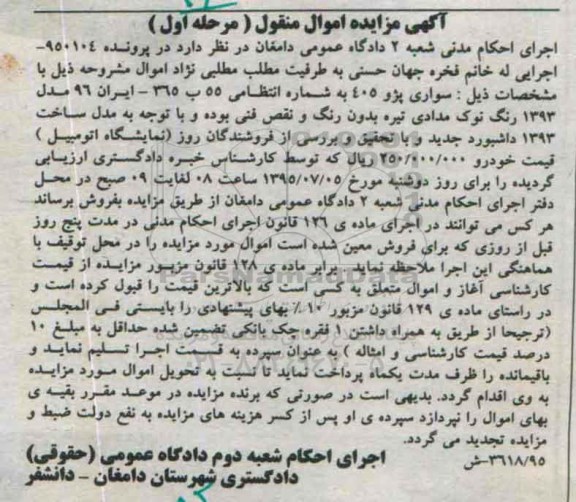 آگهی مزایده اموال منقول ( مرحله اول )
اجرای احکام مدنی شعبه ۲ دادگاه عمومی دامغان در نظر دارد در پرونده ۹۵۰۱۰۴-
اجرایی له خانم فخره جهان حسنی به طرفیت مطلب مطلبی نژاد اموال مشروحه ذیل با
مشخصات ذیل : سواری پژو ۴۰۵ به شماره انتظامی ۵۵ ب ۳۶۵ - ایران ۹۶ مدل
۱۳۹۳ رنگ نوک مدادی تیره بدون رنگ و نقص فنی بوده و با توجه به مدل ساخت
۱۳۹۳ داشبورد جدید و با تحقیق و بررسی از فروشندگان روز (نمایشگاه اتومبیل )
قیمت خودرو ۲۵۰/۰۰۰/۰۰۰ ریال که توسط کارشناس خبره دادگستری ارزیابی
گردیده را برای روز دوشنبه مورخ ۱۳۹۵/۰۷/۰۵ ساعت ۰۸ لغایت ۰۹ صبح در محل
دفتر اجرای احکام مدنی شعبه ۲ دادگاه عمومی دامغان از طریق مزایده بفروش برساند
هر کس می توانند در اجرای ماده ی ۱۲۶ قانون اجرای احکام مدنی در مدت پنج روز
قبل از روزی که برای فروش معین شده است اموال مورد مزایده را در محل توقیف با
هماهنگی این اجرا ملاحظه نماید . برابر ماده ی ۱۲۸ قانون مزبور مزایده از قیمت
کارشناسی آغاز و اموال متعلق به کسی است که بالاترین قیمت را قبول کرده است و
در راستای ماده ی ۱۲۹ قانون مزبور ۱۰٪ بهای پیشنهادی را بایستی فی المجلس
(ترجیحا از طریق به همراه داشتن ۱ فقره چک بانکی تضمین شده حداقل به مبلغ ۱۰
درصد قیمت کارشناسی و امثاله ) به عنوان سپرده به قسمت اجرا تسلیم نماید و
باقیمانده را ظرف مدت یکماه پرداخت نماید تا نسبت به تحویل اموال مورد مزایده
به وی اقدام گردد. بدیهی است در صورتی که برنده مزایده در موعد مقرر بقیه ی
بهای اموال را نپردازد سپرده ی او پس از کسر هزینه های مزایده به نفع دولت ضبط و
مزایده تجدید می گردد.
۳۶۱۸/۹۵-ش
اجرای احکام شعبه دوم دادگاه عمومی (حقوقی)
دادگستری شهرستان دامغان - دانشفر
ParsNamadData